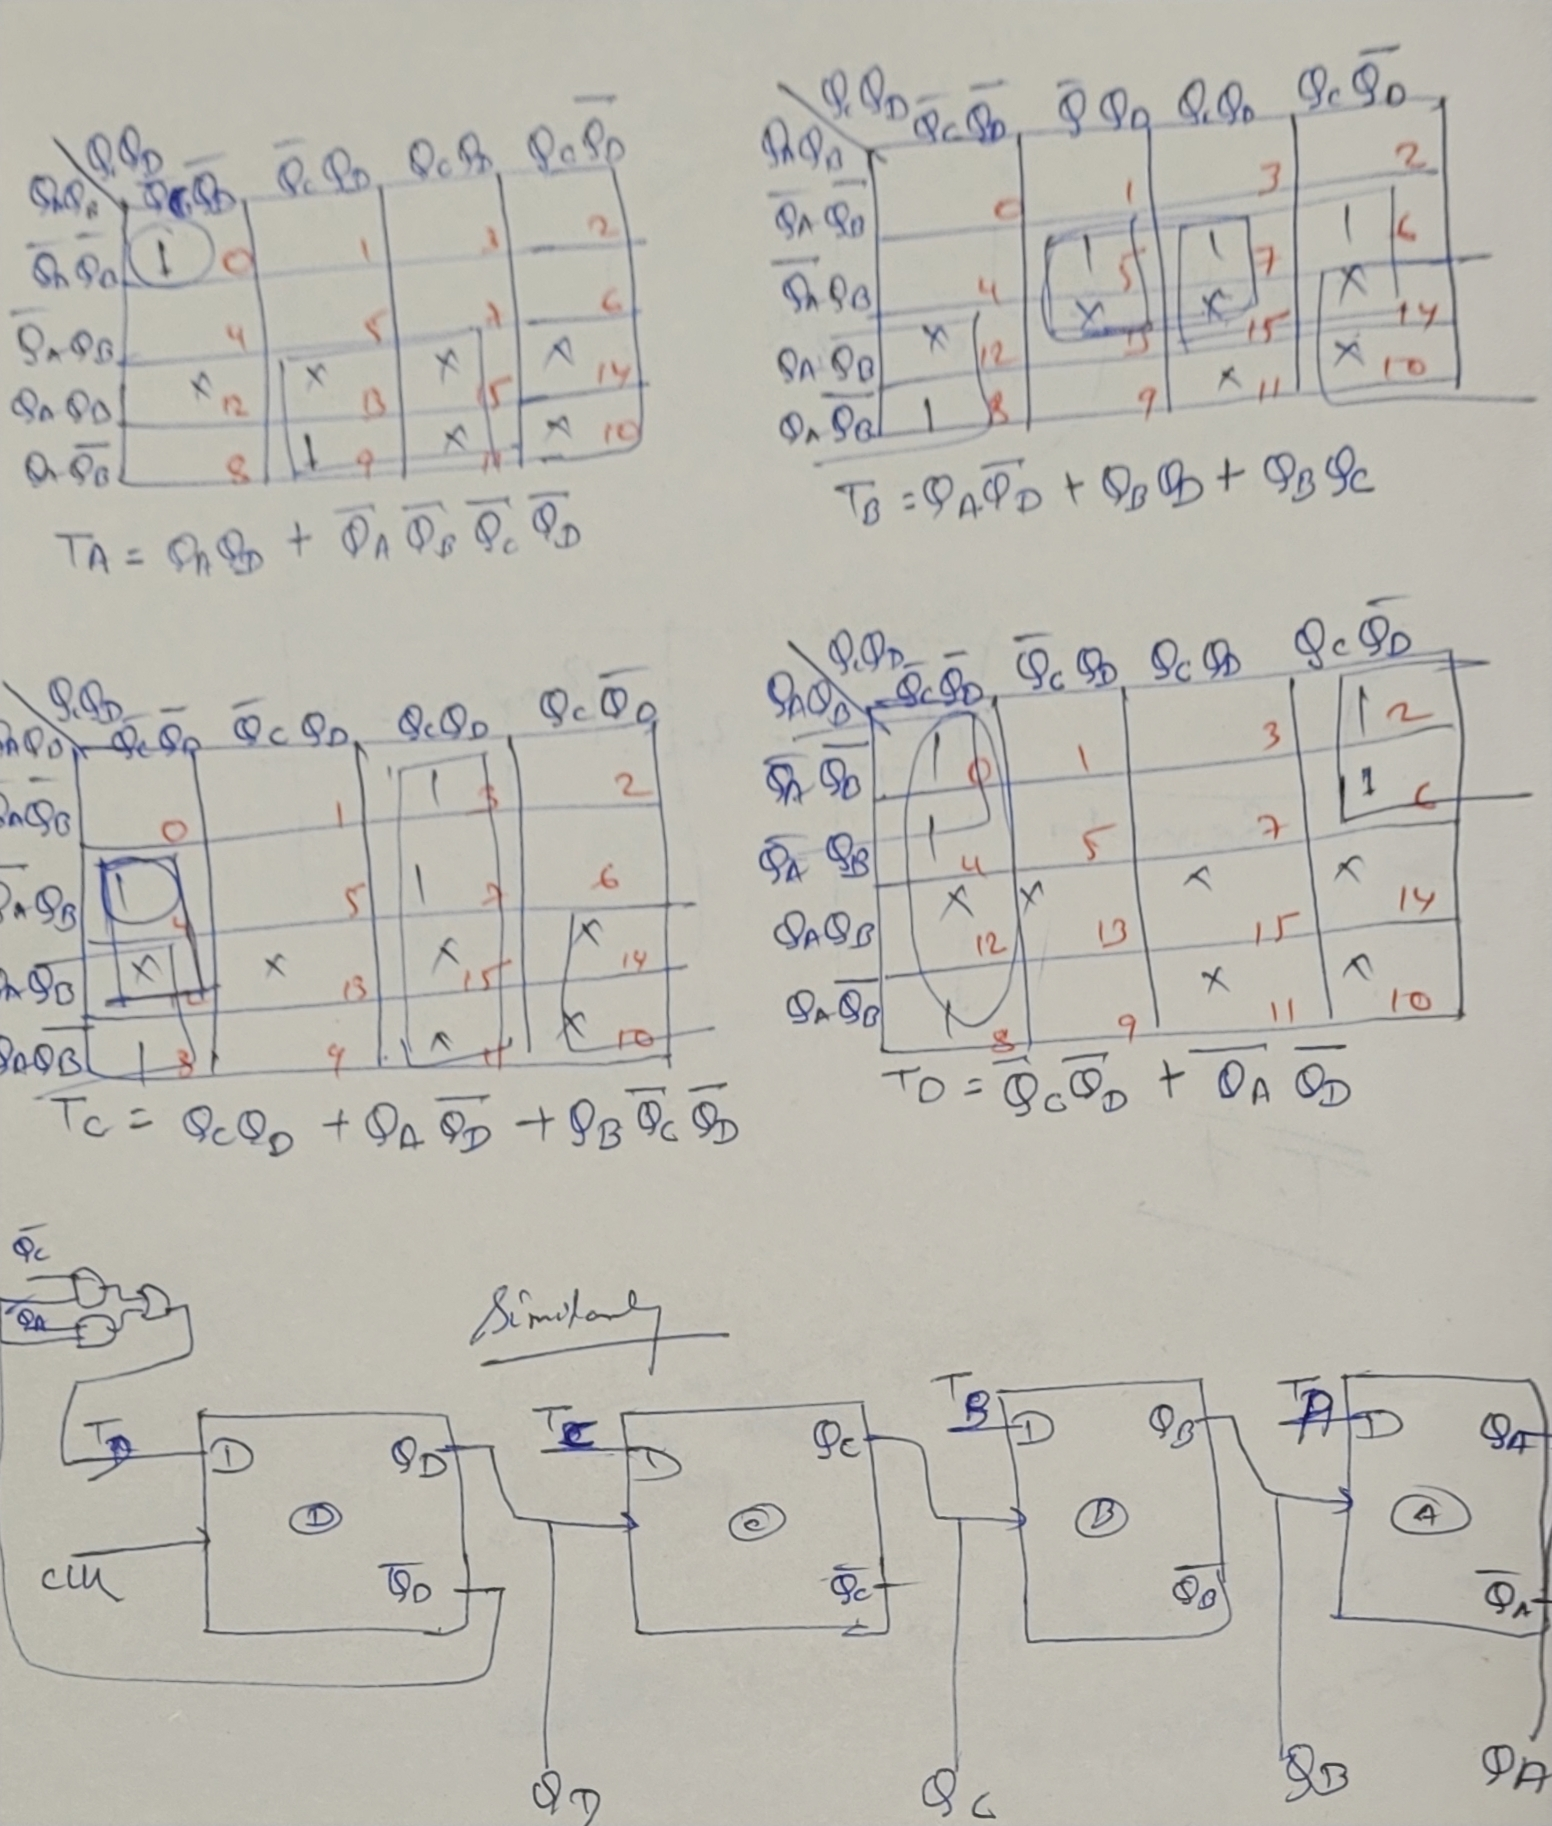 Q_C Q_D
Q_A Q_B Q̄_C Q̄_D Q̄_C Q_D Q_C Q_D Q_C Q̄_D
Q̄_A Q̄_B 1 0 1 3 2
Q̄_A Q_B 4 5 7 6
Q_A Q_B X 12 X 13 X 15 X 14
Q_A Q̄_B 8 1 9 X 11 X 10
T_A = Q_A Q_D + Q̄_A Q̄_B Q̄_C Q̄_D
Q_C Q_D
Q_A Q_B Q̄_C Q̄_D Q̄ Q_D Q_C Q_D Q_C Q̄_D
Q̄_A Q̄_B 0 1 3 2
Q̄_A Q_B 4 1 5 1 7 1 6
Q_A Q̄_B X 12 X 13 X 15 X 14
Q_A Q̄_B 1 8 9 X 11 X 10
T_B = Q_A Q̄_D + Q_B Q_D + Q_B Q_C
Q_C Q_D
Q_A Q_B Q̄_C Q̄_D Q̄_C Q_D Q_C Q_D Q_C Q̄_D
Q̄_A Q̄_B 0 1 1 3 2
Q̄_A Q_B 1 4 5 1 7 6
Q_A Q_B X X 13 X 15 X 14
Q_A Q̄_B 1 8 9 X 11 X 10
T_C = Q_C Q_D + Q_A Q̄_D + Q_B Q̄_C Q̄_D
Q_C Q_D
Q_A Q_B Q̄_C Q̄_D Q̄_C Q_D Q_C Q_D Q_C Q̄_D
Q̄_A Q̄_B 1 0 1 3 1 2
Q̄_A Q_B 1 4 5 7 1 6
Q_A Q_B X 12 X 13 X 15 X 14
Q_A Q̄_B 1 8 9 X 11 X 10
T_D = Q̄_C Q̄_D + Q̄_A Q̄_D
Q̄_C
Q̄_A
Similarly
T_D D Q_D T_C D Q_C T_B D Q_B T_A D Q_A
D C B A
CLK Q̄_D Q̄_C Q̄_B Q̄_A
Q_D Q_C Q_B Q_A